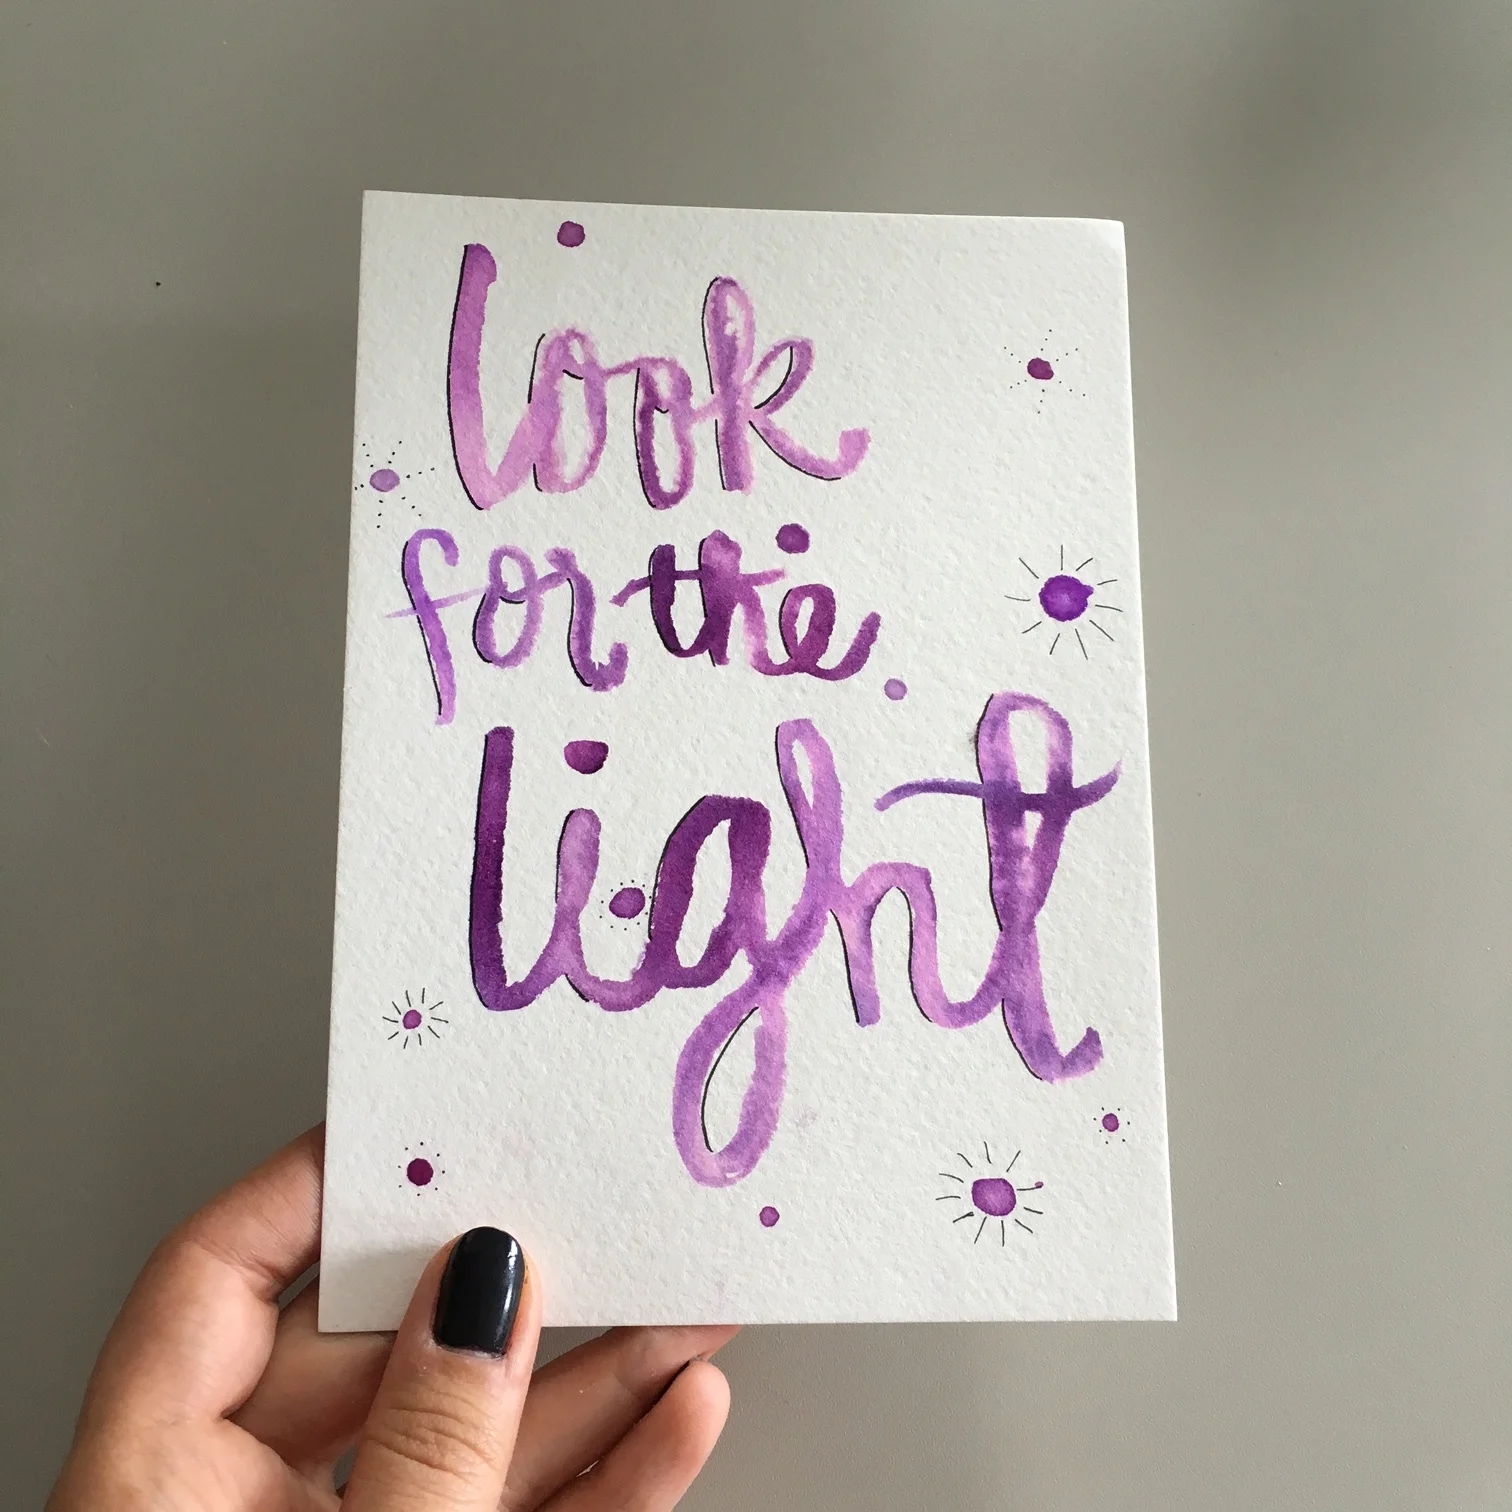 look
for the
light